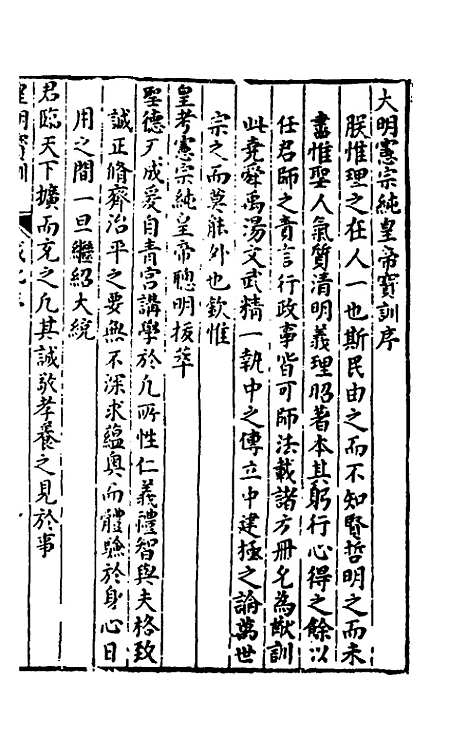 大明憲宗純皇帝寶訓序
朕惟理之在人一也斯民由之而不知賢哲明之而未
盡惟聖人氣質清明義理昭著本其躬行心得之餘以
任君師之責言行政事皆可師法載諸方冊允為猷訓
此堯舜禹湯文武精一執中之傳立中建極之論萬世
宗之而莫能外也欽惟
皇考憲宗純皇帝聰明拔萃
聖德夙成爰自青宮講學於凡所性仁義禮智與夫格致
誠正脩齊治平之要無不深求蘊奧而體驗於身心日
用之間一旦繼紹大統
君臨天下擴而充之凡其誠敬孝養之見於事
皇明寶訓